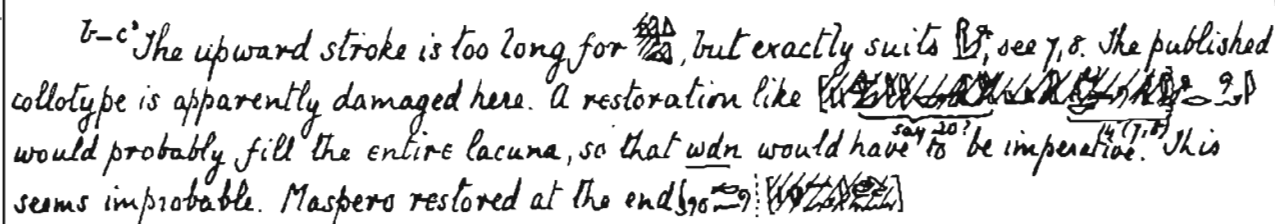 b–c' The upward stroke is too long for , but exactly suits , see 7,8. The published
collotype is apparently damaged here. A restoration like [ ]
say 20? 14 (7,8)
would probably fill the entire lacuna, so that wdn would have to be imperative. This
seems improbable. Maspero restored at the end [ ]